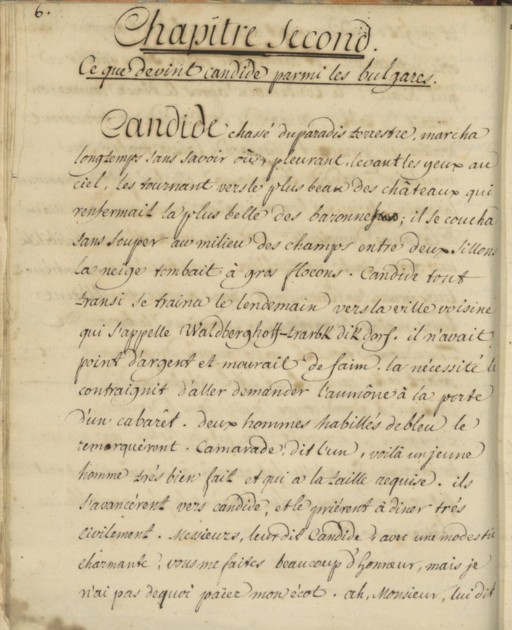 6.
Chapitre Second.
Ce que devint candide parmi les bulgares.
Candide chassé du paradis terrestre, marcha
longtemps sans savoir où, pleurant, levant les yeux au
ciel, les tournant vers le plus beau des châteaux qui
renfermait la plus belle des baronnettes; il se coucha
sans souper au milieu des champs entre deux sillons
la neige tombait à gros flocons. Candide tout
transi se traina le lendemain vers la ville voisine
qui s'appelle Waldberghoff-trarbk dikdorf. il n'avait
point d'argent et mourait de faim. la nécessité le
contraignit d'aller demander l'aumône à la porte
d'un cabarêt. deux hommes habillés de bleu le
remarquèront. Camarade, dit l'un, voilà un jeune
homme très bien fait et qui a la taille requise. ils
s'avancèrent vers candide, et le prièrent à diner très
civilement. Messieurs, leur dit Candide d'avec une modestie
charmante, vous me faites beaucoup d'honneur, mais je
n'ai pas dequoi païer mon écot. ah, Monsieur, lui dit